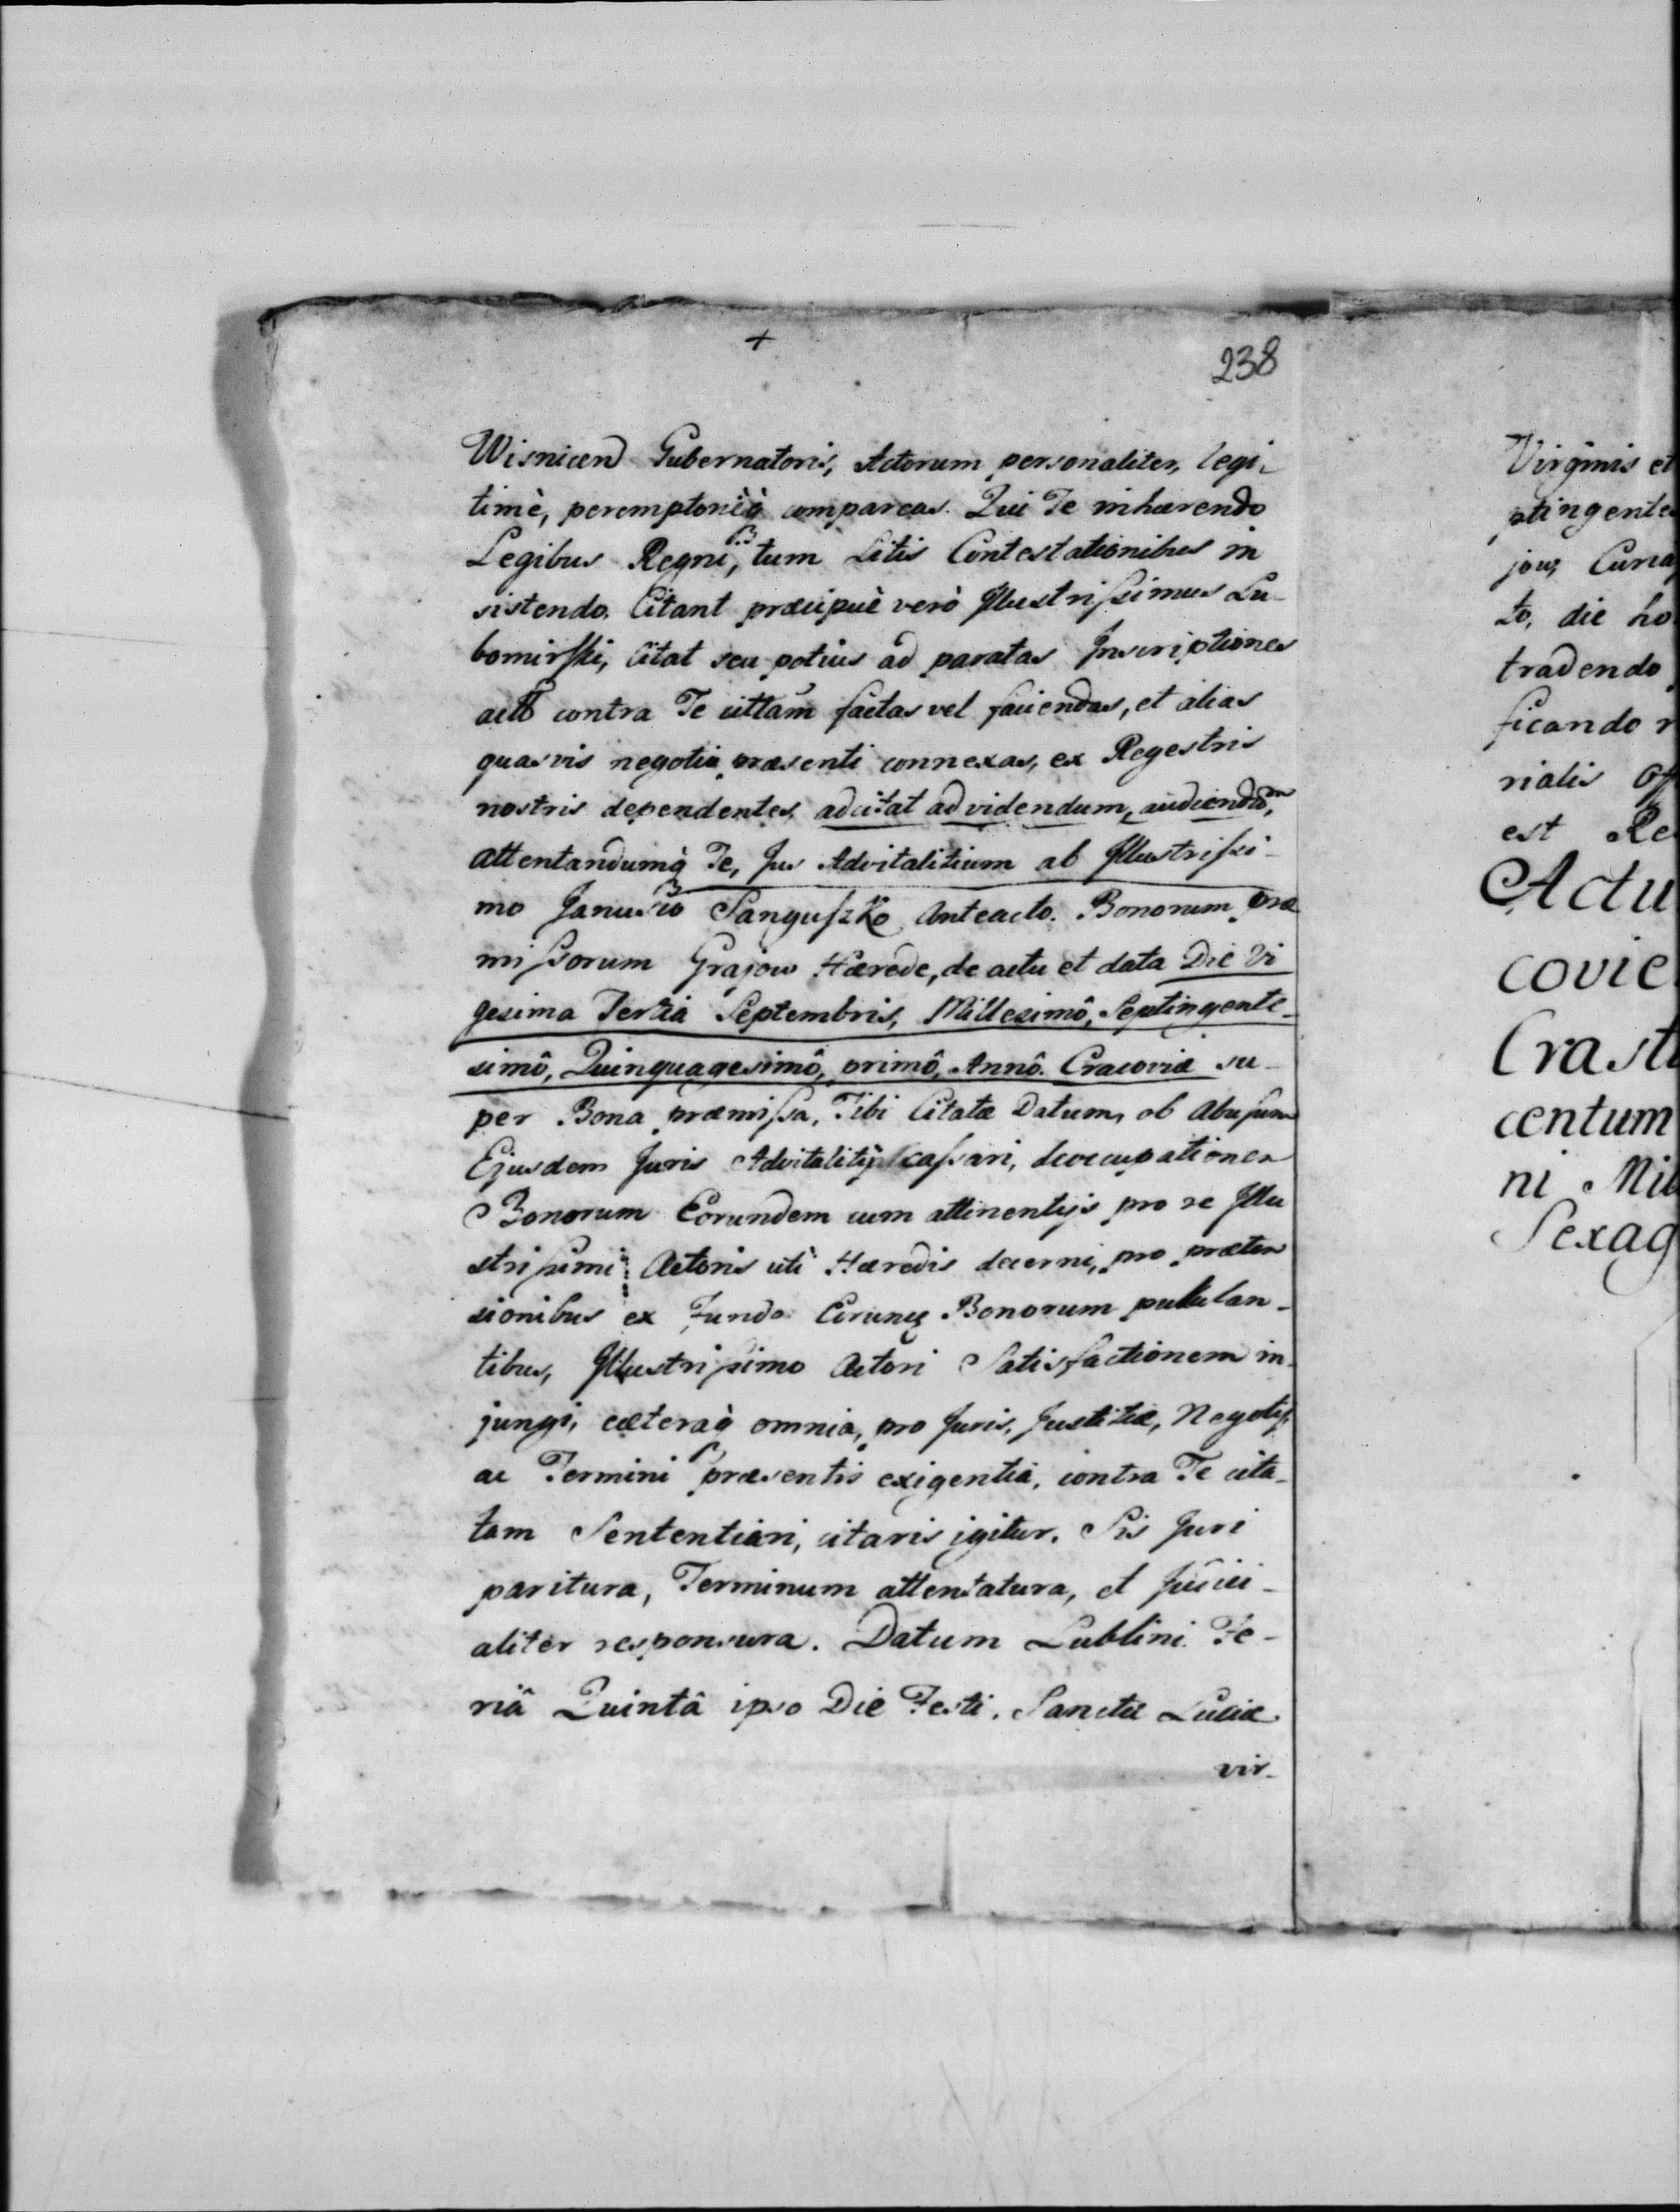 +
238
Wisnicen Gubernatoris, Actorum personaliter, legi-
timè, peremptorièq̀ compareas. Qui Te inhærendo
Legibus Regni, tum Litis Contestationibus in
sistendo. Citant præcipuè verò Illustrissimus Lu-
bomirski, Citat seu potius ad paratas Inscriptiones
contra Te cittam factas vel faciendas, et alias
quasvis negotio præsenti connexas, ex Regestris
nostris dependentes, adcitat ad videndum, audiendum,
attentandumq̀ Te, Jus Advitalitium ab Illustrissi-
mo Janusio Sanguszko Anteacto. Bonorum Præ
missorum Grajow Hærede, de actu et data Die Vi
gesima Tertia Septembris, Millesimô, Septingente-
simô, Quinquagesimô, primô, Annô. Cracoviæ su-
per Bona præmissa, Tibi Citatæ Datum, ob Abusum
Ejusdem Juris Advitalitij cassari, deoccupationem
Bonorum Eorundem cum attinentijs pro re Illu
strissimi Actoris uti Hæredis decerni, pro præten
sionibus ex Fundo Eorunq Bonorum pullulan-
tibus, Illustrissimo Actori Satisfactionem in-
jungi, cæteraq̀ omnia, pro Juris, Justitiæ, Negotij,
ac Termini præsentis exigentiâ, contra Te cita-
tam Sententiari, citaris igitur. Sis Juri
paritura, Terminum attentatura, et Judici-
aliter responsura. Datum Lublini. Fe-
riâ Quintâ ipso Die Festi. Sanctæ Luciæ
vir-
Virginis et
ptingente
jow, Curia
to, die ho
tradendo
ficando r
rialis Off
est Re
Actu
covie
Crast
centum
ni Mil
Sexag